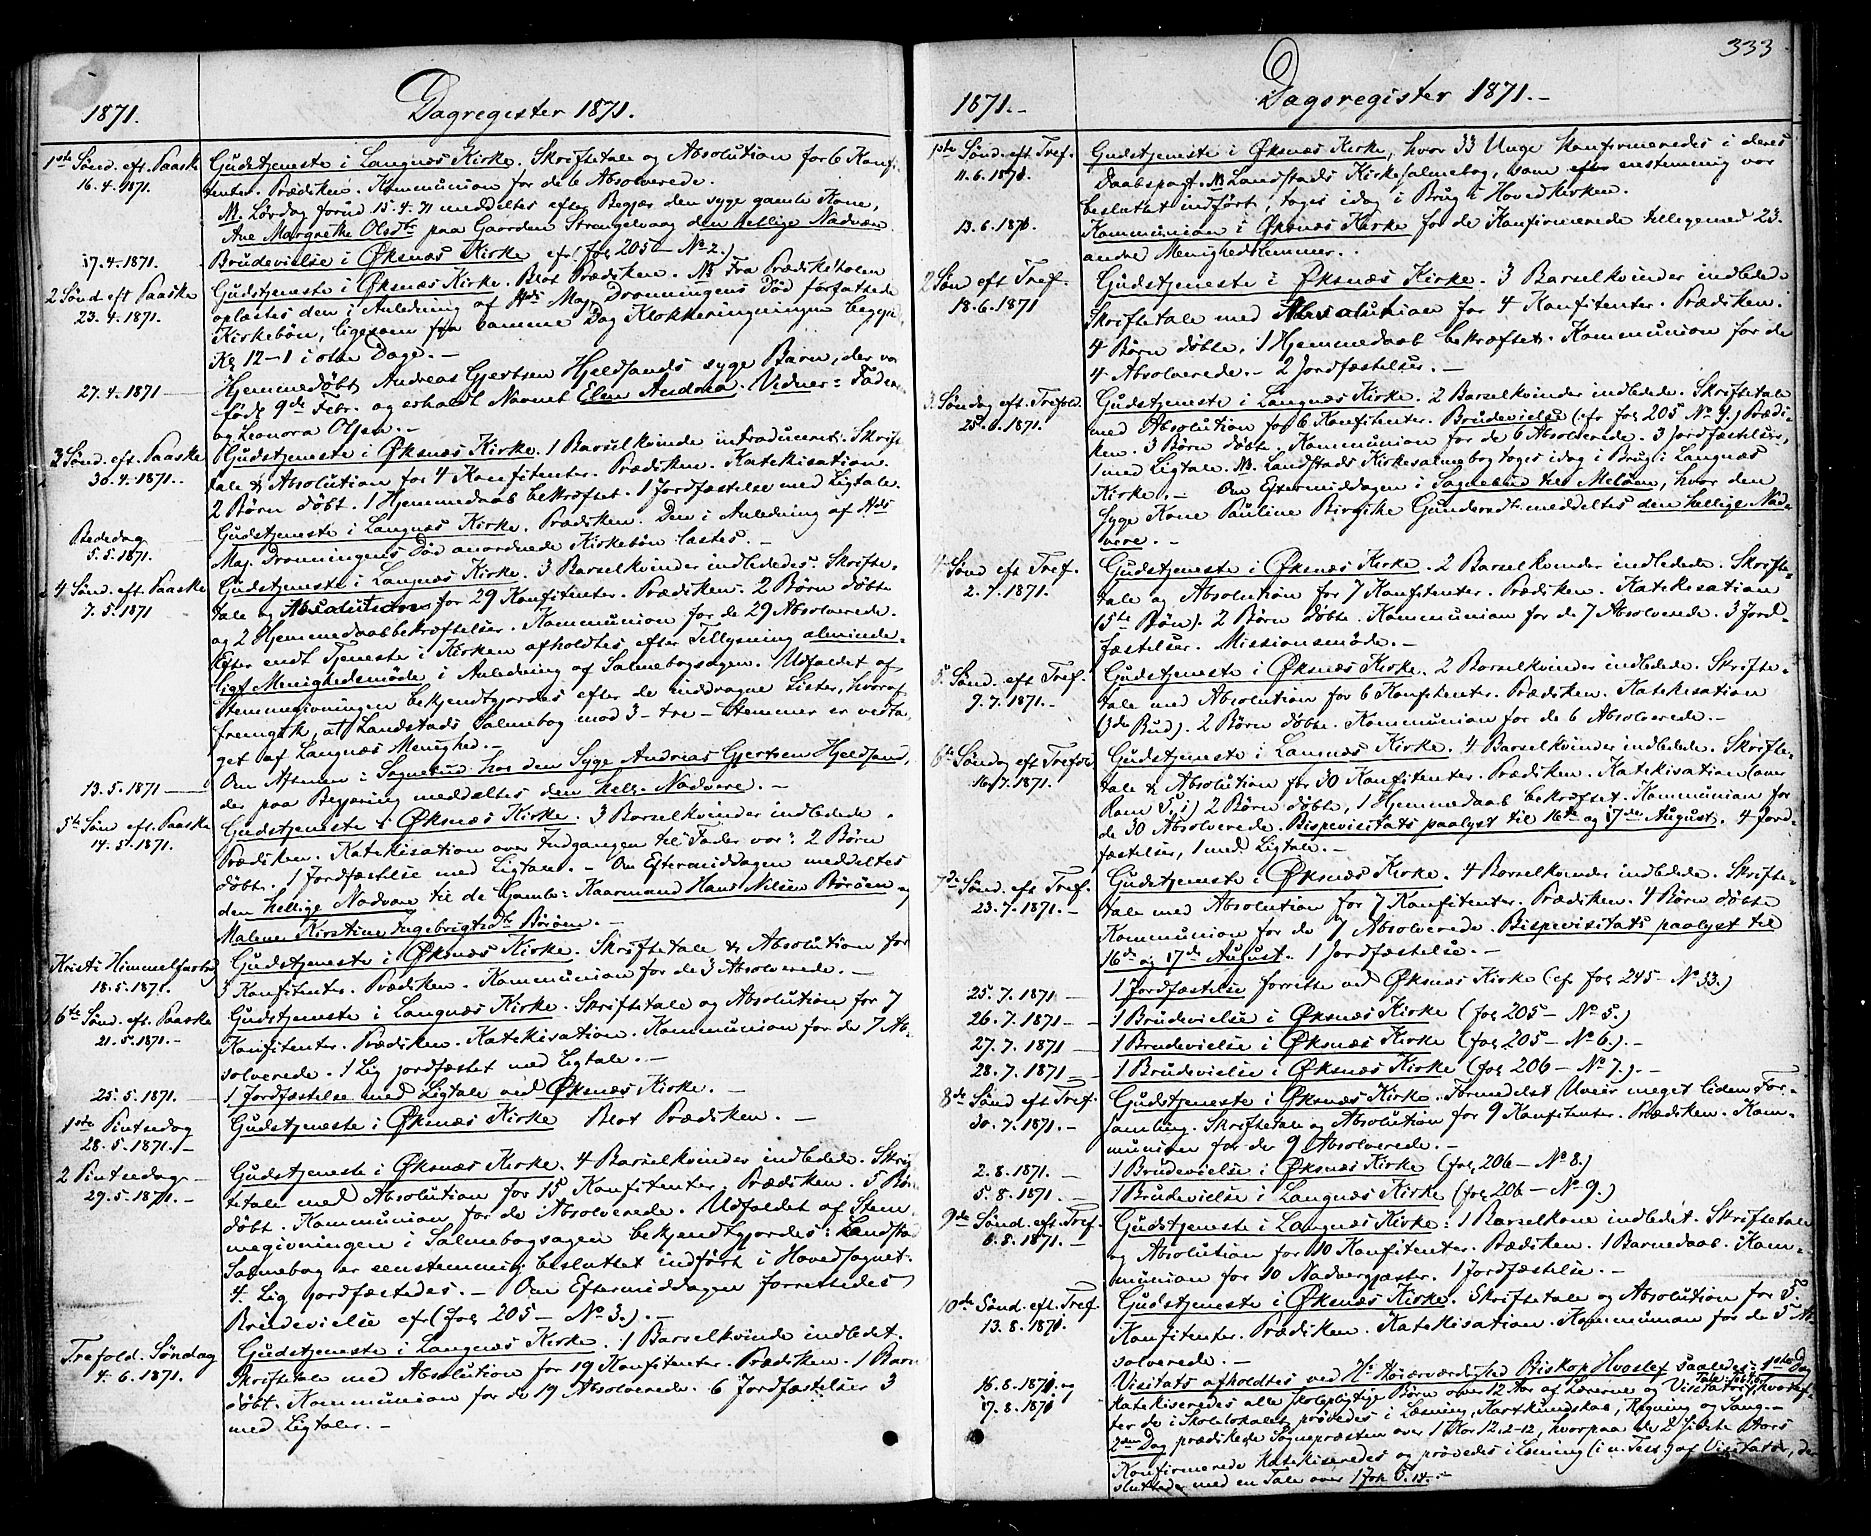 1871.
Dagregister 1871.
1ste Sønd. eft. Paaske
16.4.1871.
Gudstjeneste i Langnæs Kirke. Skriftetale og Absolution for 6 Konfi-
tenter. Prædiken. Kommunion for de 6 Absolverede.
NB. Lørdag forud 15.4.71 meddeltes efter Begjær den syge gamle Kone,
Ane Margrethe Olsdtr paa Gaarden Strengelvaag den hellige Nadvere
17.4.1871.
Brudevielse i Øksnæs Kirke cfr. fol 205 - No 2.)
2 Sønd eft Paaske
23.4.1871.
Gudstjeneste i Øksnæs Kirke. Blot Prædiken. NB Fra Prædikestolen
oplæstes den i Anledning af Hds Maj. Dronningens Død forfattede
Kirkebøn, ligesom fra samme Dag Klokkeringningen begynd
Kl 12-1 i otte Dage. -
27.4.1871
Hjemmedøbt Andreas Gjertsen Hjeldsands syge Barn, der var
født 9de Febr. og erholdt Navnet Elen Andrea. Vidner: Faderen
og Leonora Olsen. -
3 Sønd. eft. Paaske
30.4.1871.
Gudstjeneste i Øksnæs Kirke. 1 Barselkvinde introduceret. Skrifte-
tale & Absolution for 4 Konfitenter. Prædiken. Katekisation.
2 Børn døbt. 1 Hjemmedaab bekræftet. 1 Jordfæstelse med Ligtale.
Bededag
5.5.1871.
Gudstjeneste i Langnæs Kirke. Prædiken. Den i Anledning af Hds
Maj. Dronningens Død anordnede Kirkebøn læstes. -
4 Sønd. eft. Paaske
7.5.1871
Gudstjeneste i Langnæs Kirke. 3 Barselkvinder indlededes. Skrifte-
tale og Absolution for 29 Konfitenter. Prædiken. 2 Børn døbte
og 2 Hjemmedaabbekræftelser. Kommunion for de 29 Absolverede.
Efter endt Tjeneste i Kirken afholdtes efter Tillysning alminde-
ligt Menighedsmøde i Anledning af Salmebogsagen. Udfaldet af
Stemmegivningen bekjendtgjordes efter de inddragne Lister, hvoraf
fremgik, at Landstads Salmebog mod 3 - tre - Stemmer er vedta-
get af Langnæs Menighed. -
13.5.1871
Om Aftenen i Sognebud hos den Syge Andreas Gjertsen Hjeldsand,
der paa Begjæring meddeltes den hell. Nadvere. -
5te Sønd eft. Paaske
14.5.1871.
Gudstjeneste i Øksnæs Kirke. 3 Barselkvinder indledede.
Prædiken. Katekisation over Indgangen til Fader vor: 2 Børn
døbt. 1 Jordfæstelse med Ligtale. - Om Eftermiddagen meddeltes
den hellige Nadvere til de Gamle: Kaarmand Hans Nilsen Børøen og
Malene Kirstine Ingebrigtsdtr Børøen. -
Kristi Himmelfartsd
18.5.1871.
Gudstjeneste i Øksnæs Kirke. Skriftetale & Absolution for
3 Konfitenter. Prædiken. Kommunion for de 3 Absolverede. -
6te Sønd. eft. Paaske
21.5.1871. -
Gudstjeneste i Langnæs Kirke. Skriftetale og Absolution for 7
Konfitenter. Prædiken. Katekisation. Kommunion for de 7 Ab-
solverede. 1 Lig jordfæstet med Ligtale. -
25.5.1871. -
1 Jordfæstelse med Ligtale ved Øksnæs Kirke. -
1ste Pintsedag
28.5.1871. -
Gudstjeneste i Øksnæs Kirke Blot Prædiken. -
2 Pintsedag
29.5.1871. -
Gudstjeneste i Øksnæs Kirke. 4 Barselkvinder indledede. Skrif-
tetale med Absolution for 15 Konfitenter. Prædiken. 5 Børn
døbt. Kommunion for de Absolverede. Udfaldet af Stem-
megivningen i Salmebogsagen bekjendtgjordes: Landstads
Salmebog er eenstemmig besluttet indført i Hovedsognet.
4 Lig jordfæstedes. - Om Eftermiddagen forrettedes
Brudevielse cf (fol 205 - No 3.) -
Trefold. Søndag
4.6.1871.
Gudstjeneste i Langnæs Kirke. 1 Barselkvinde indledet.
Skriftetale med Absolution for 19 Konfitenter. Prædiken. 1 Barn
døbt. Kommunion for de 19 Absolverede. 6 Jordfæstelser 3
med Ligtaler. -
333
1871. -
Dagsregister 1871. -
1ste Sønd. eft. Tref.
11.6.1871.
Gudstjeneste i Øksnæs Kirke, hvor 33 Unge konfirmeredes i deres
Daabspagt. NB Landstads Kirkesalmebog, som enstemmig var
besluttet indført, toges idag i Brug i Hovedkirken.
13.6.1871.
Kommunion i Øksnæs Kirke for de Konfirmerede tilligemed 23
andre Menighedslemmer. -
2 Søn eft Tref.
18.6.1871
Gudstjeneste i Øksnæs Kirke. 3 Barselkvinder indledede
Skriftetale med Absolution for 4 Konfitenter. Prædiken.
4 Børn døbte. 1 Hjemmedaab bekræftet. Kommunion for de
4 Absolverede. - 2 Jordfæstelser. -
3. Søndag eft. Trefold.
25.6.1871.
Gudstjeneste i Langnæs Kirke. 2 Barselkvinder indledede. Skriftetale
med Absolution for 6 Konfitenter. Brudevielse (cfr fol 205 No 4.) Prædi-
ken. 3 Børn døbt. Kommunion for de 6 Absolverede. 3 Jordfæstelser,
1 med Ligtale. NB. Landstads Kirkesalmebog toges idag i Brug i Langnæs
Kirke. - Om Eftermiddagen i Sognebud til Meløen, hvor den
syge Kone Pauline Birgitte Gundersdt meddeltes den hellige Nad-
vere. -
4 Sønd eft Tref.
2.7.1871.
Gudstjeneste i Øksnæs Kirke. 2 Barselkvinder indledede. Skrifte-
tale og Absolution for 7 Konfitenter. Prædiken. Katekisation
(5te Bøn). 2 Børn døbte. Kommunion for de 7 Absolverede. 3 Jord-
fæstelser. Missionsmøde. -
5. Sønd. eft Tref.
9.7.1871. -
Gudstjeneste i Øksnæs Kirke. 2 Barselkvinder indledede. Skrifte-
tale med Absolution for 6 Konfitenter. Prædiken. Katekisation
(3die Bud). 2 Børn døbte. Kommunion for de 6 Absolverede. -
6te Søndag eft Trefold
16.7.1871.
Gudstjeneste i Langnæs Kirke. 4 Barselkvinder indledede. Skrifte-
tale & Absolution for 30 Konfitenter. Prædiken. Katekisation (over
Rom 5, 1) 2 Børn døbte, 1 Hjemmedaab bekræftet. Kommunion for
de 30 Absolverede. Bispevisitats paalyst til 16de og 17de August. 4 Jord-
fæstelser, 1 med Ligtale. -
7de Sønd. eft Tref.
23.7.1871. -
Gudstjeneste i Øksnæs Kirke. 4 Barselkvinder indledede. Skrifte-
tale med Absolution for 7 Konfitenter. Prædiken. 4 Børn døbte
Kommunion for de 7 Absolverede. Bispevisitats paalyst til
16de og 17de August. 1 Jordfæstelse. -
25.7.1871
1 Jordfæstelse forrettet ved Øksnæs Kirke (cf fol 245 - No 33.)
26.7.1871 -
1 Brudevielse i Øksnæs Kirke (fol 205 - No 5.)
27.7.1871
1 Brudevielse i Øksnæs Kirke (fol 205 - No 6.). -
28.7.1871
1 Brudevielse i Øksnæs Kirke (fol 206 - No 7.). -
8de Sønd eft Tref.
30.7.1871. -
Gudstjeneste i Øksnæs Kirke. Formedelst Uveir meget liden For-
samling. Skriftetale og Absolution for 9 Konfitenter. Prædiken. Kom-
munion for de 9 Absolverede. -
2.8.1871. -
1 Brudevielse i Øksnæs Kirke (fol 206 - No 8.)
5.8.1871. -
1 Brudevielse i Langnæs Kirke (fol 206 - No 9.)
9de Sønd. eft. Tref.
6.8.1871. -
Gudstjeneste i Langnæs Kirke: 1 Barselkone indledet. Skriftetale
og Absolution for 10 Konfitenter. Prædiken. 1 Barnedaab. Kom-
munion for 10 Nadvergjæster. 1 Jordfæstelse. -
10de Sønd. eft. Tref.
13.8.1871.
Gudstjeneste i Øksnæs Kirke. Skriftetale og Absolution for 5
Konfitenter. Prædiken. Katekisation. Kommunion for de 5 Ab-
solverede. -
16.8.1871. og
17.8.1871
Visitats afholdtes ved Hs Høiærværdighed Biskop Hvoslef saaledes: 1ste Dag
katekiseredes alle skolepligtige Børn over 12 Aar af Lærerne og Visitator, hvoref-
ter de i Skolelokalet prøvedes i Læsning, Kartkundskab, Regning og Sang. -
2den Dag prædikede Sognepræsten over 1 Kor 12, 2-12, hvorpaa de 2 sidste Aars
Konfirmerede katekiseredes og prøvedes i Læsning (i n. Test.) af Visitator, der
sluttede med en Tale over 1 Joh 5, 14. -